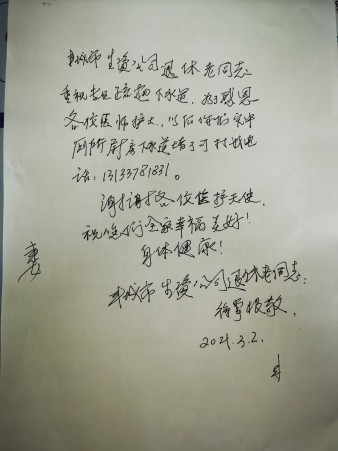 丰城市生資公司退休老同志
重视专业疏通下水道，为了感恩
各位医师护士，以后你们家中
厕所厨房下水道堵了可打我电
话：13133781831。
谢谢各位医护天使。
祝您们全家幸福美好！
身体健康！
丰城市生資公司退休老同志：
敬。
2021.3.2.